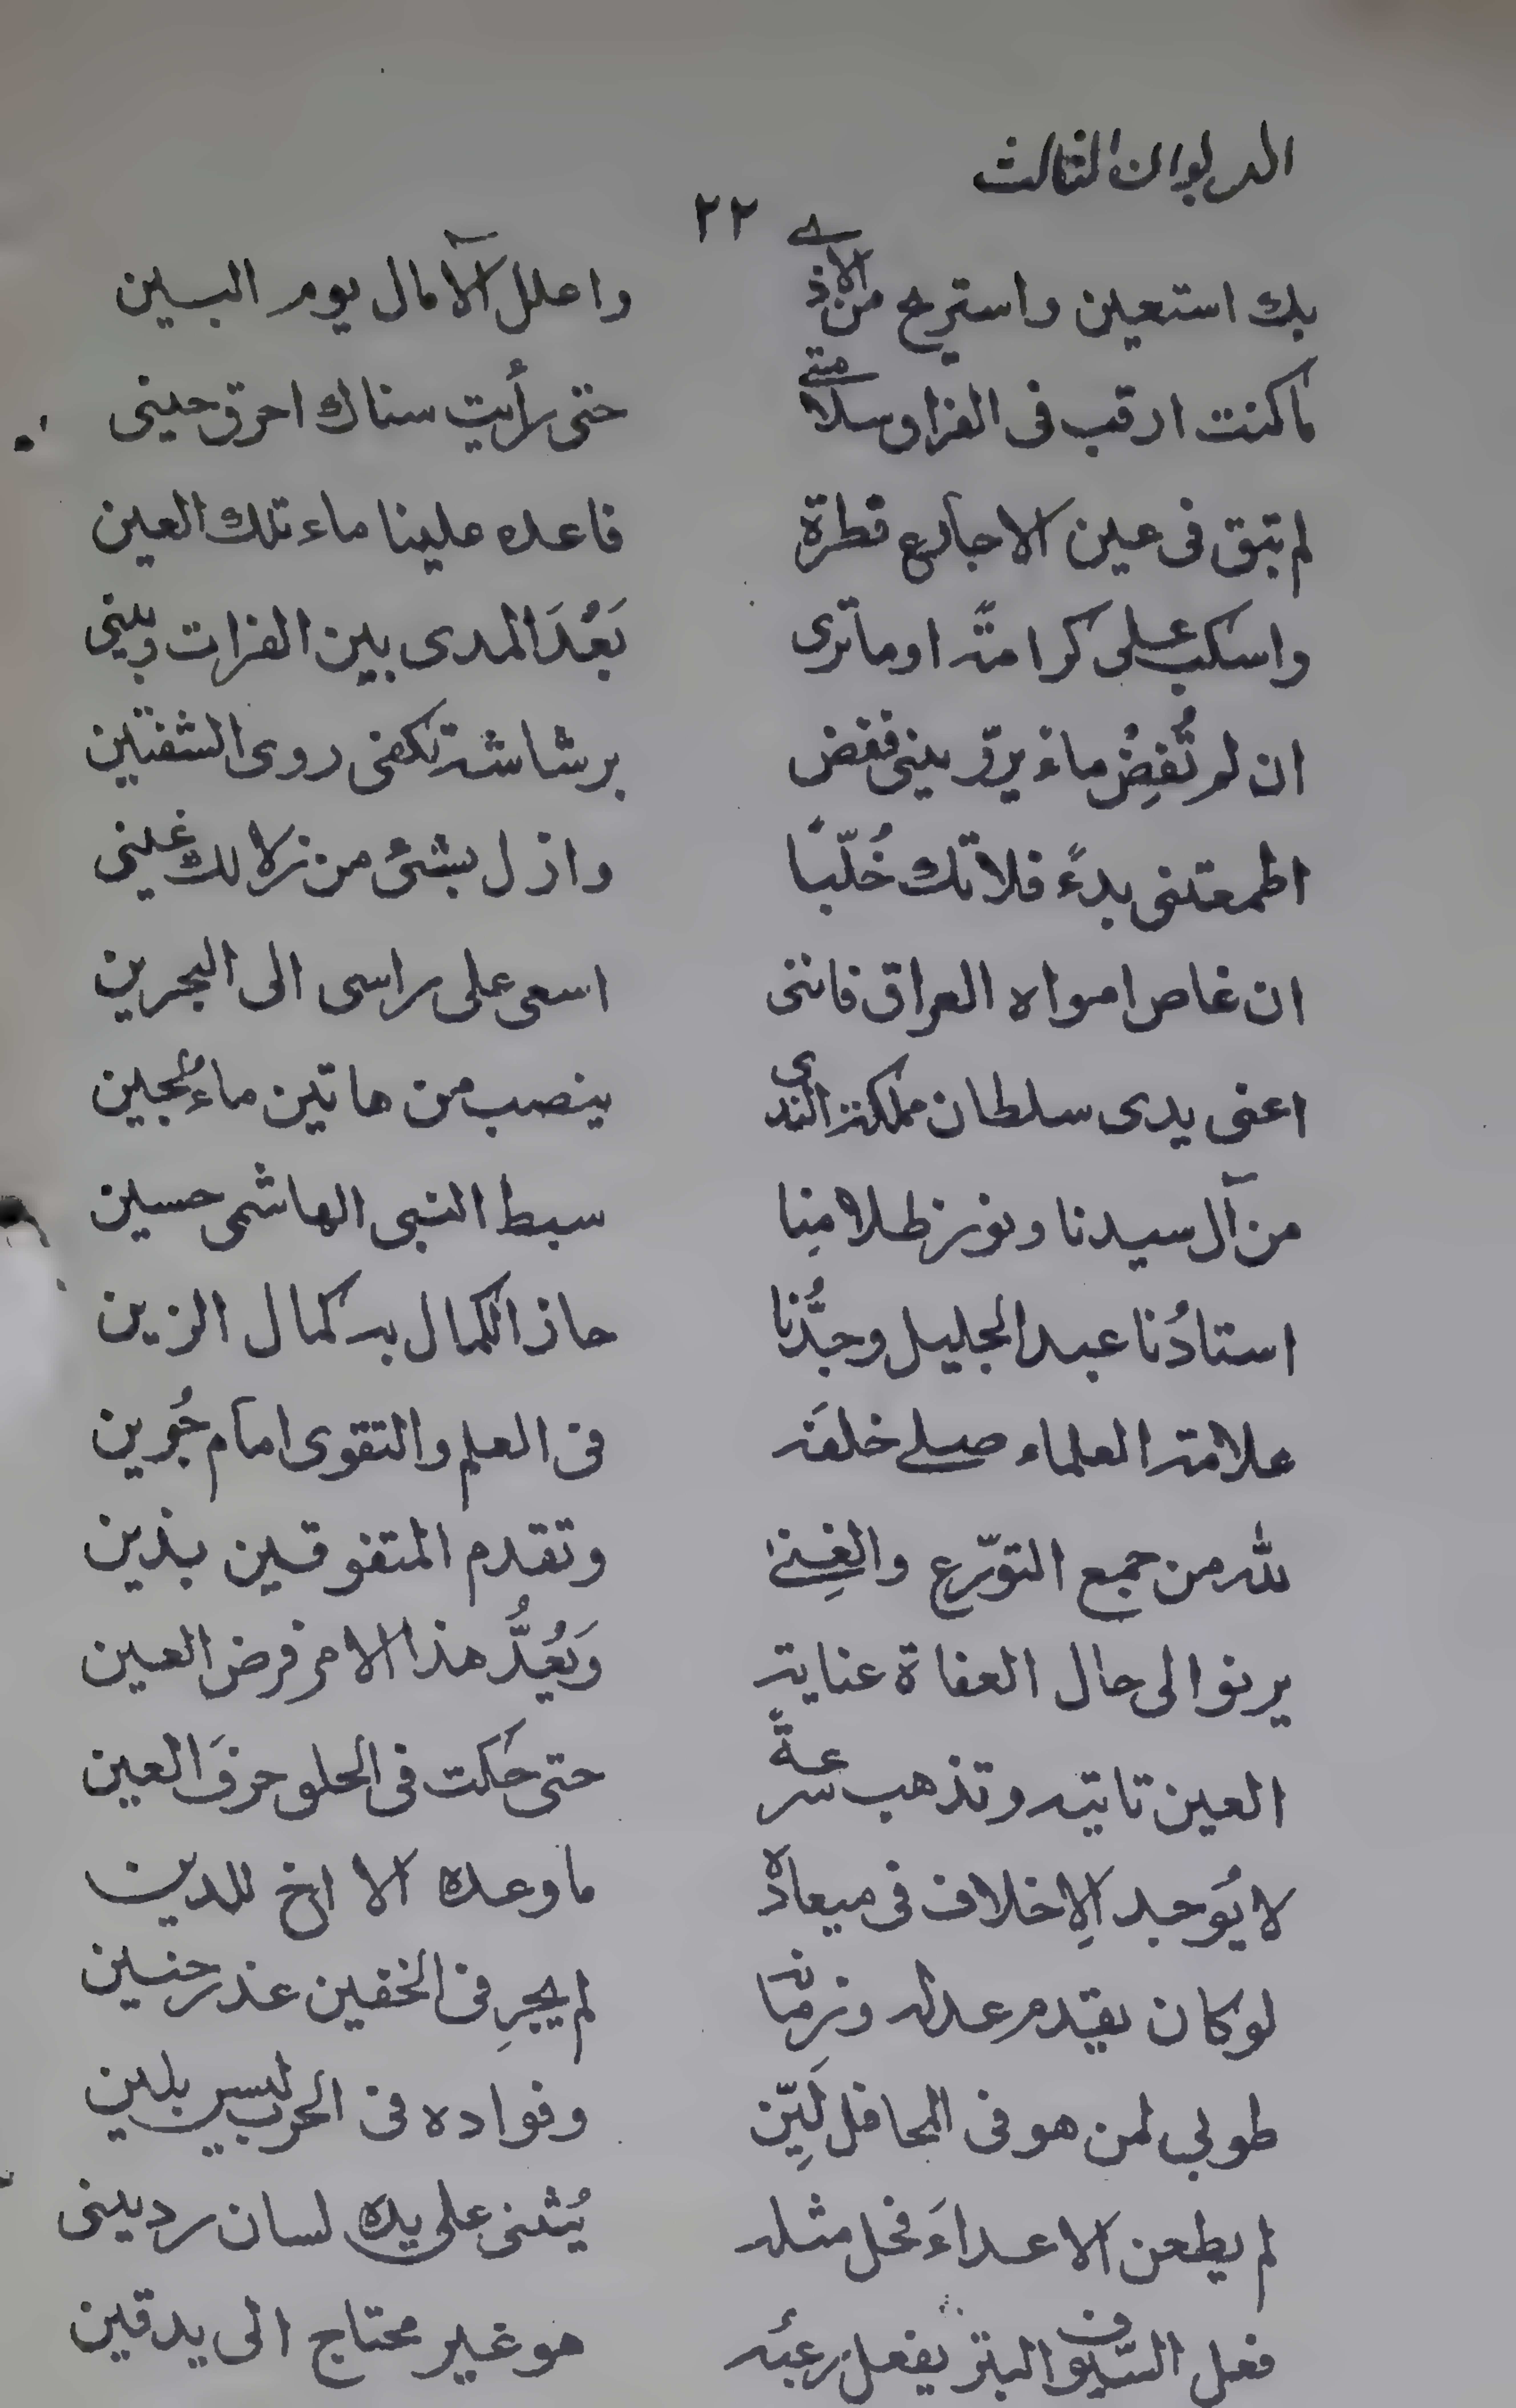 الديوان الثالث
٢٢
بك استعين واستريح من الاذى واعلل الآمال يوم البين
ما كنت ارقب فى الفراق سلامتى حتى رأيت سناك احرق حينى
لم تبق فى عين الاجارع قطرة فاعده علينا ماء تلك العين
واسكب على كرامة او ما ترى بَعُدَ المدى بين الفرات وبينى
ان لم تُفِضْ ماءً يروّينى ففض برشاشة تكفى روى الشفتين
اطمعتنى بدءً فلا تك خُلّبًا وازل بشئ من زلالك غينى
ان غاص امواه العراق فاننى اسعى على راسى الى البحرين
اعنى يدى سلطان مملكة الندى ينصب من هاتين ماءُ لجين
من آل سيدنا ونور ظلامنا سبط النبى الهاشمى حسين
استاذُنا عبد الجليل وجدُّنا حاز الكمال به كمال الزين
علامة العلماء صلى خلفَه فى العلم والتقوى امام جُوين
لله من جمع التورّع والغِنىٰ وتقدم المتفوقين بذين
يرنو الى حال العفاة عناية وَيَعُدُّ هذا الامر فرض العين
العين تاتيه وتذهب سرعةً حتى حكت فى الحلو حرفَ العين
لا يُوجد الاِخلاف فى ميعاده ما وعده الا اخ للدين
لو كان يقدم عدله وزمانه لم يجرِ فى الخفين عذر حنين
طوبى لمن هو فى المحافل لَيِّن وفواده فى الحرب ليس بلين
لم يطعن الاعداءَ فحل مثله يُثنى على يده لسان ردينى
فعل السّيوف البتر يفعل رعبُه هو غير محتاج الى يد قين